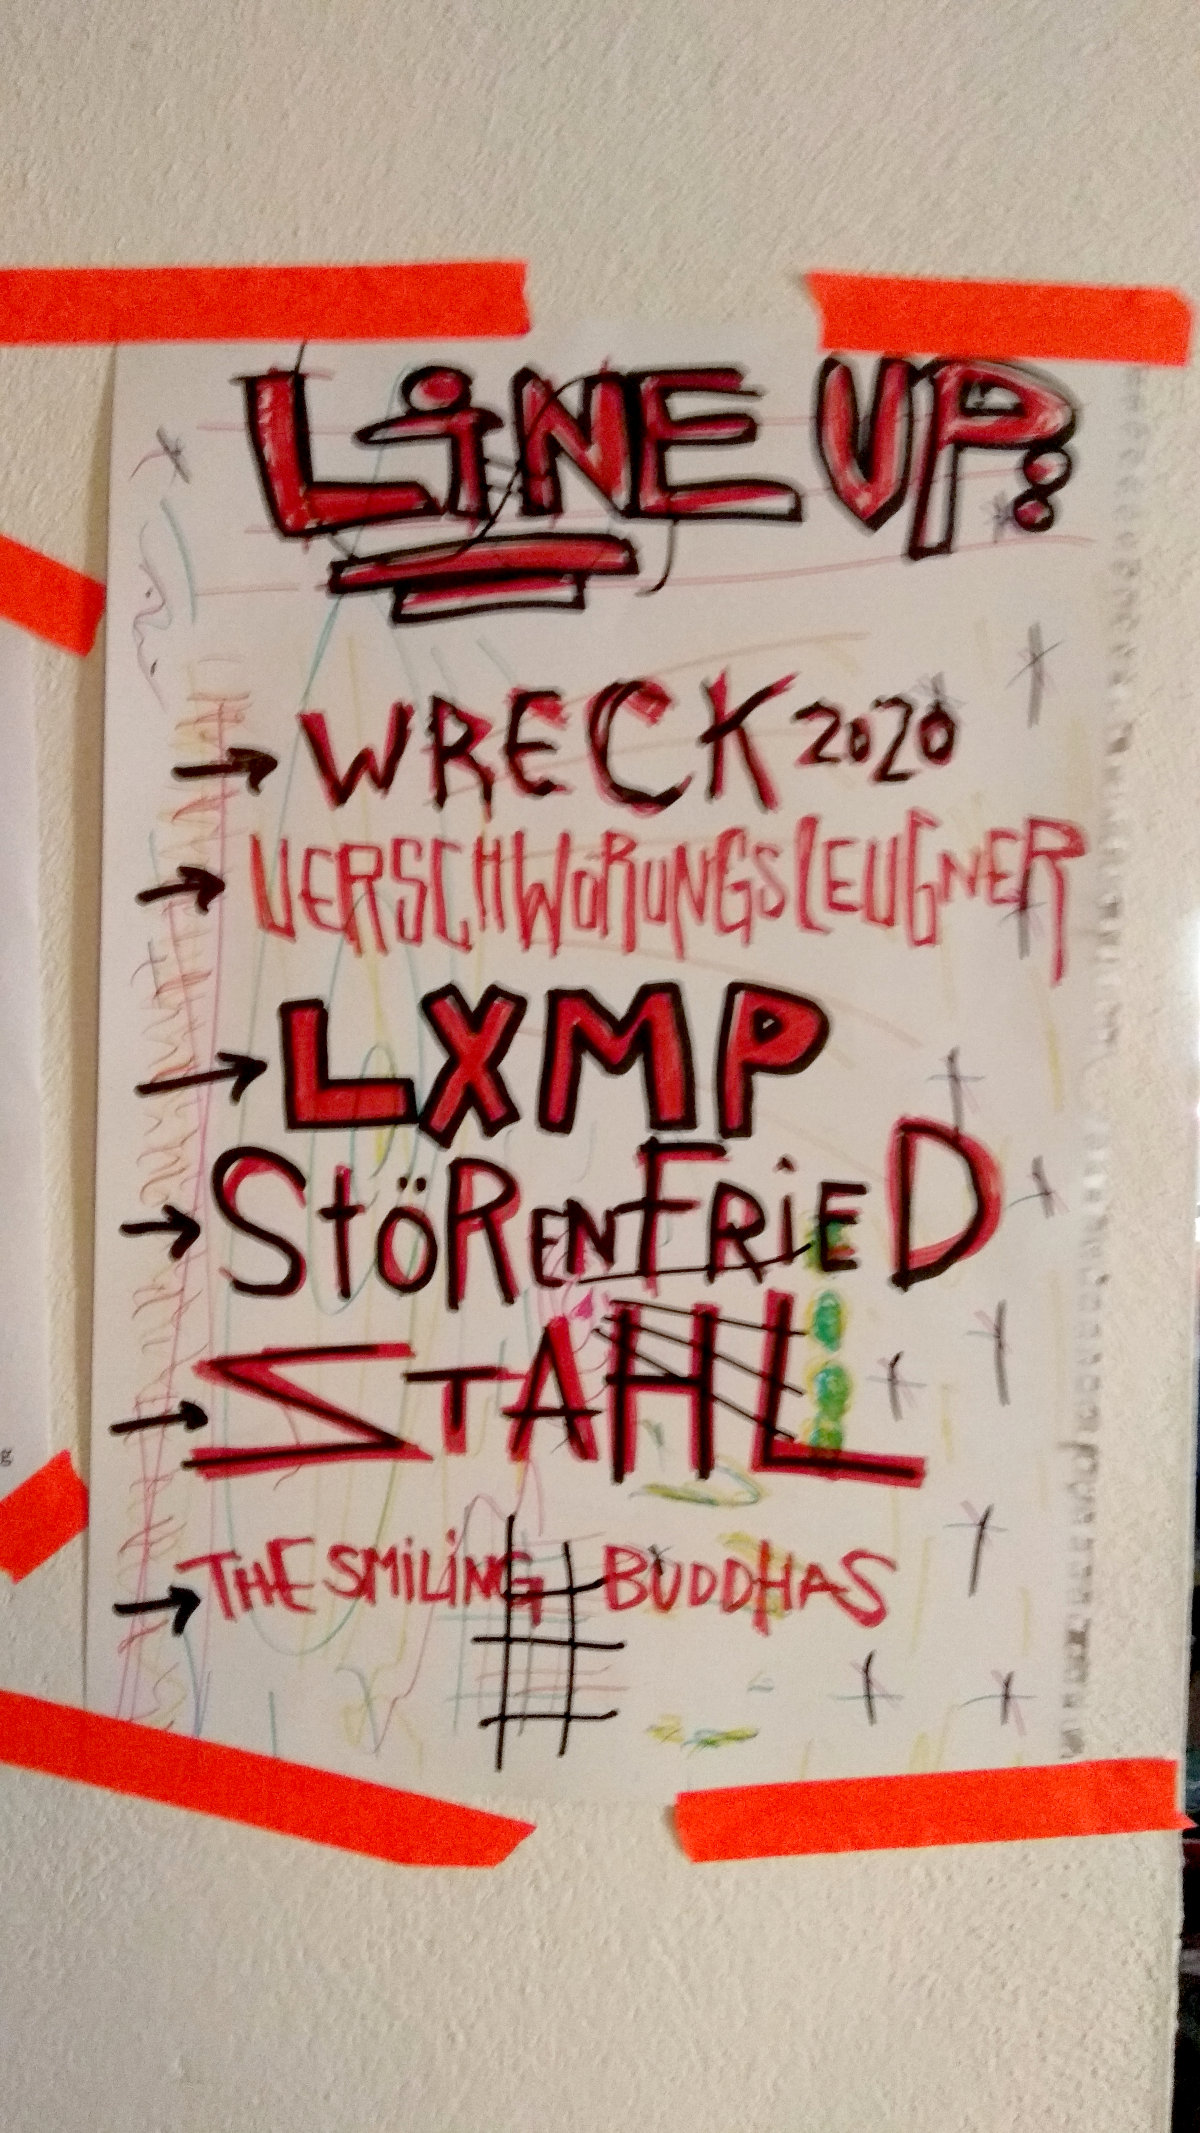 LINE UP:
→ WRECK 2020
→ VERSCHWORUNGSLEUGNER
→ LXMP
→ STÖRENFRIED
→ STAHL
→ THE SMILING BUDDHAS
g